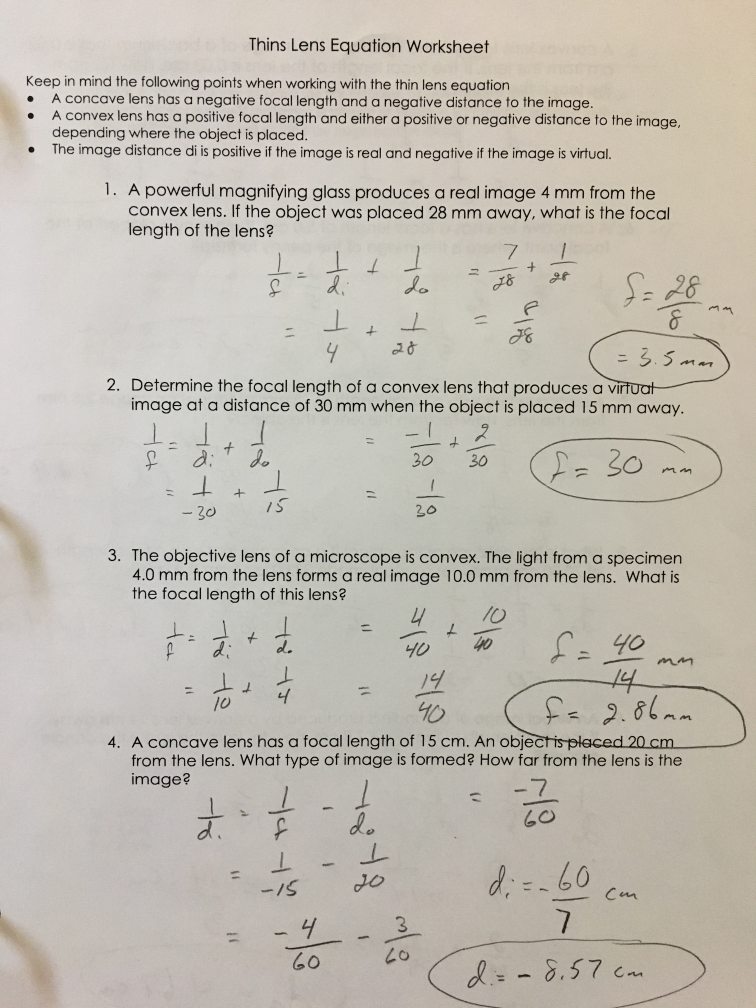 Thins Lens Equation Worksheet
Keep in mind the following points when working with the thin lens equation
• A concave lens has a negative focal length and a negative distance to the image.
• A convex lens has a positive focal length and either a positive or negative distance to the image,
depending where the object is placed.
• The image distance di is positive if the image is real and negative if the image is virtual.
1. A powerful magnifying glass produces a real image 4 mm from the
convex lens. If the object was placed 28 mm away, what is the focal
length of the lens?
1/f = 1/di + 1/do = 7/28 + 1/28
= 1/4 + 1/28 = 8/28
f = 28/8 mm
= 3.5 mm
2. Determine the focal length of a convex lens that produces a virtual
image at a distance of 30 mm when the object is placed 15 mm away.
1/f = 1/di + 1/do = -1/30 + 2/30
= 1/-30 + 1/15 = 1/30
f = 30 mm
3. The objective lens of a microscope is convex. The light from a specimen
4.0 mm from the lens forms a real image 10.0 mm from the lens. What is
the focal length of this lens?
1/f = 1/di + 1/do = 4/40 + 10/40
= 1/10 + 1/4 = 14/40
f = 40/14 mm
f = 2.86 mm
4. A concave lens has a focal length of 15 cm. An object is placed 20 cm
from the lens. What type of image is formed? How far from the lens is the
image?
1/di = 1/f - 1/do = -7/60
= 1/-15 - 1/20
= -4/60 - 3/60
di = -60/7 cm
di = -8.57 cm